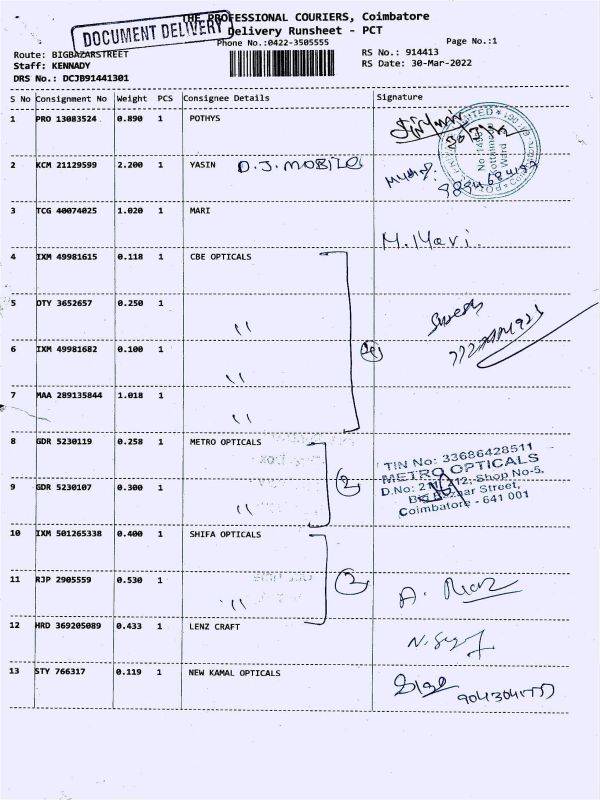 THE PROFESSIONAL COURIERS, Coimbatore
DOCUMENT DELIVERY
Delivery Runsheet - PCT
Phone No.:0422-3505555
Page No.:1
Route: BIGBAZARSTREET
RS No.: 914413
Staff: KENNADY
RS Date: 30-Mar-2022
DRS No.: DCJB91441301
S No Consignment No Weight PCS Consignee Details Signature
1 PRO 13083524 0.890 1 POTHYS
2 KCM 21129599 2.200 1 YASIN D.J. MOBILE
3 TCG 40074025 1.020 1 MARI
M. Mari.
4 IXM 49981615 0.118 1 CBE OPTICALS
5 DTY 3652657 0.250 1 "
6 IXM 49981682 0.100 1 "
7 MAA 289135844 1.018 1 "
8 GDR 5230119 0.258 1 METRO OPTICALS
TIN No: 33686428511
METRO OPTICALS
D.No: 212, Shop No-5,
Big Bazaar Street,
Coimbatore - 641 001
9 GDR 5230107 0.300 1 "
2
10 IXM 501265338 0.400 1 SHIFA OPTICALS
11 RJP 2905559 0.530 1 "
2
12 HRD 369205089 0.433 1 LENZ CRAFT
13 STY 766317 0.119 1 NEW KAMAL OPTICALS